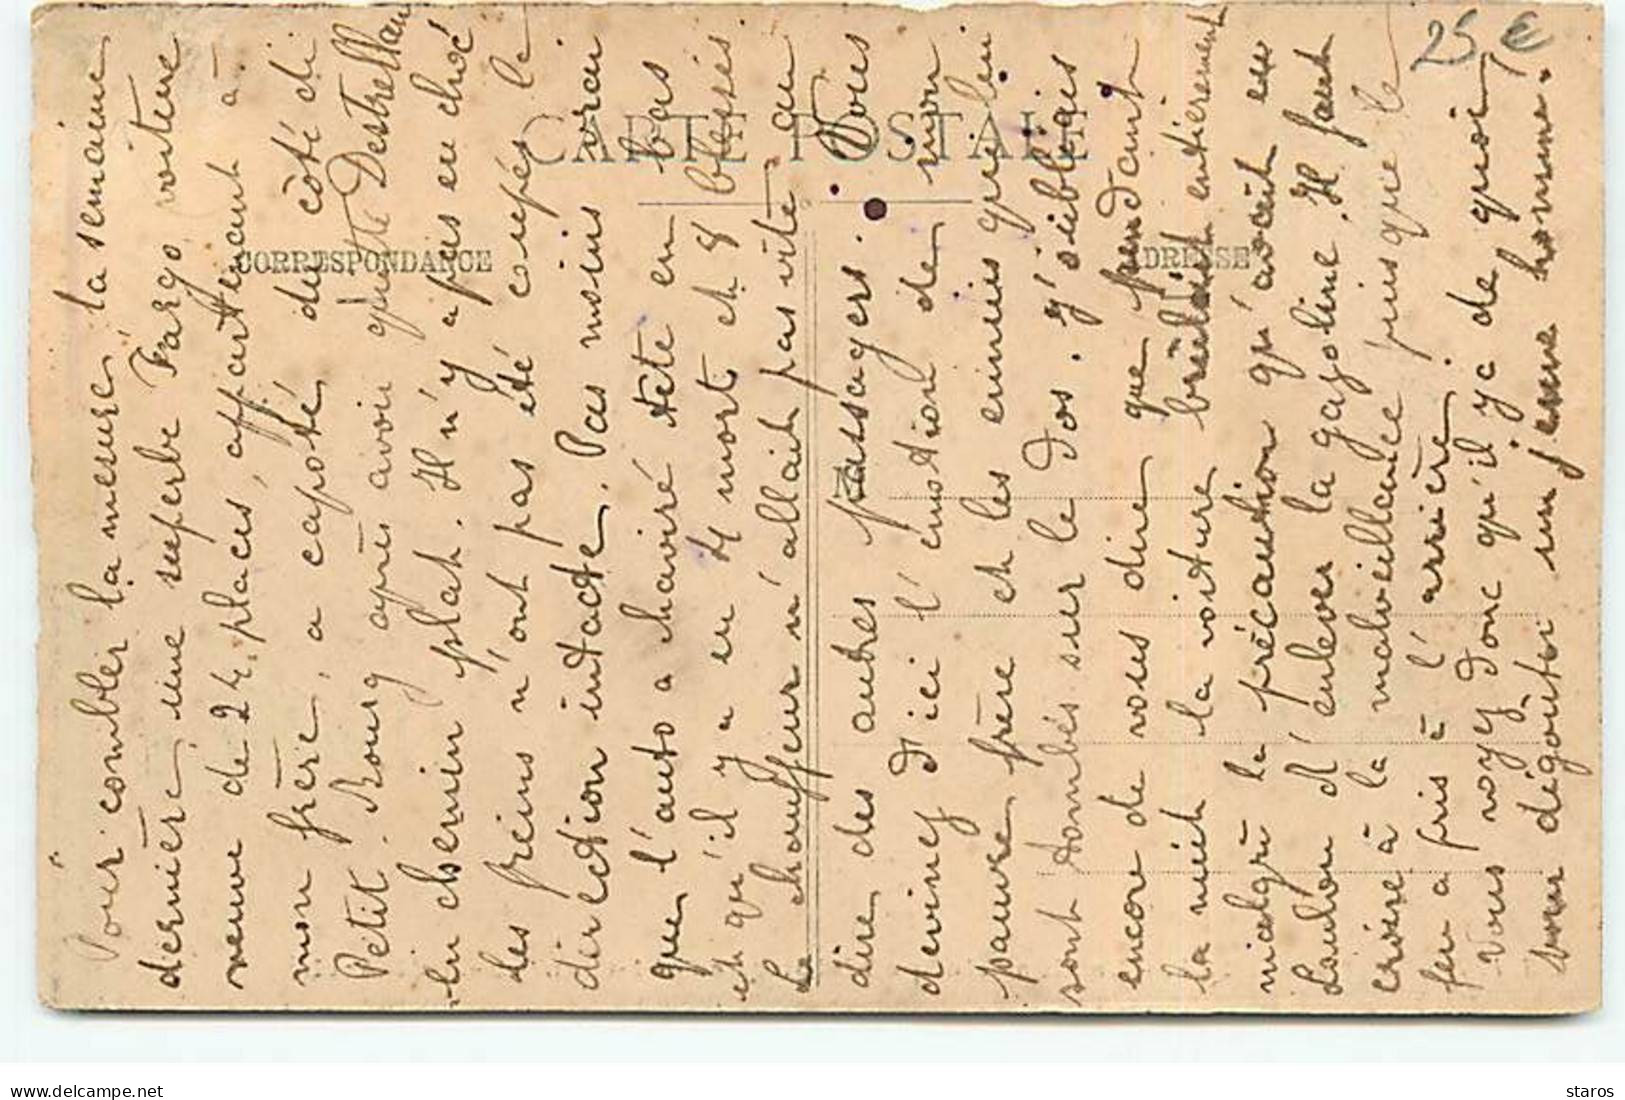 25 €
CARTE POSTALE
CORRESPONDANCE
ADRESSE
Pour combler la mesure, la semaine
dernière une superbe Fargo voiture
neuve de 24 places, appartenant à
mon frère, a capoté du côté di
Petit. Bourg après avoir quitté Destrellan
en chemin plat. Il n'y a pas eu choc
les freins n'ont pas été coupés la
direction intacte. Pas moins vrai
que l'auto a chaviré tête en bas
et qu'il y a eu 4 mort et 8 blessés
Le chauffeur n'allait pas vite au
dire des autres passagers. Vous
devinez d'ici l'émotion de mon
pauvre frère et les ennuis qui lui
sont tombés sur le dos. J'oubliais
encore de vous dire que pendant
la nuit la voiture brûlait entièrement
malgré la précaution qu'avait eu
Loulou d'enlever la gazoline. Il faut
croire à la malveillance puisque le
feu a pris à l'arrière.
Vous voyez donc qu'il y a de quoi
vous dégoûter un jeune homme.
www.delcampe.net
staros